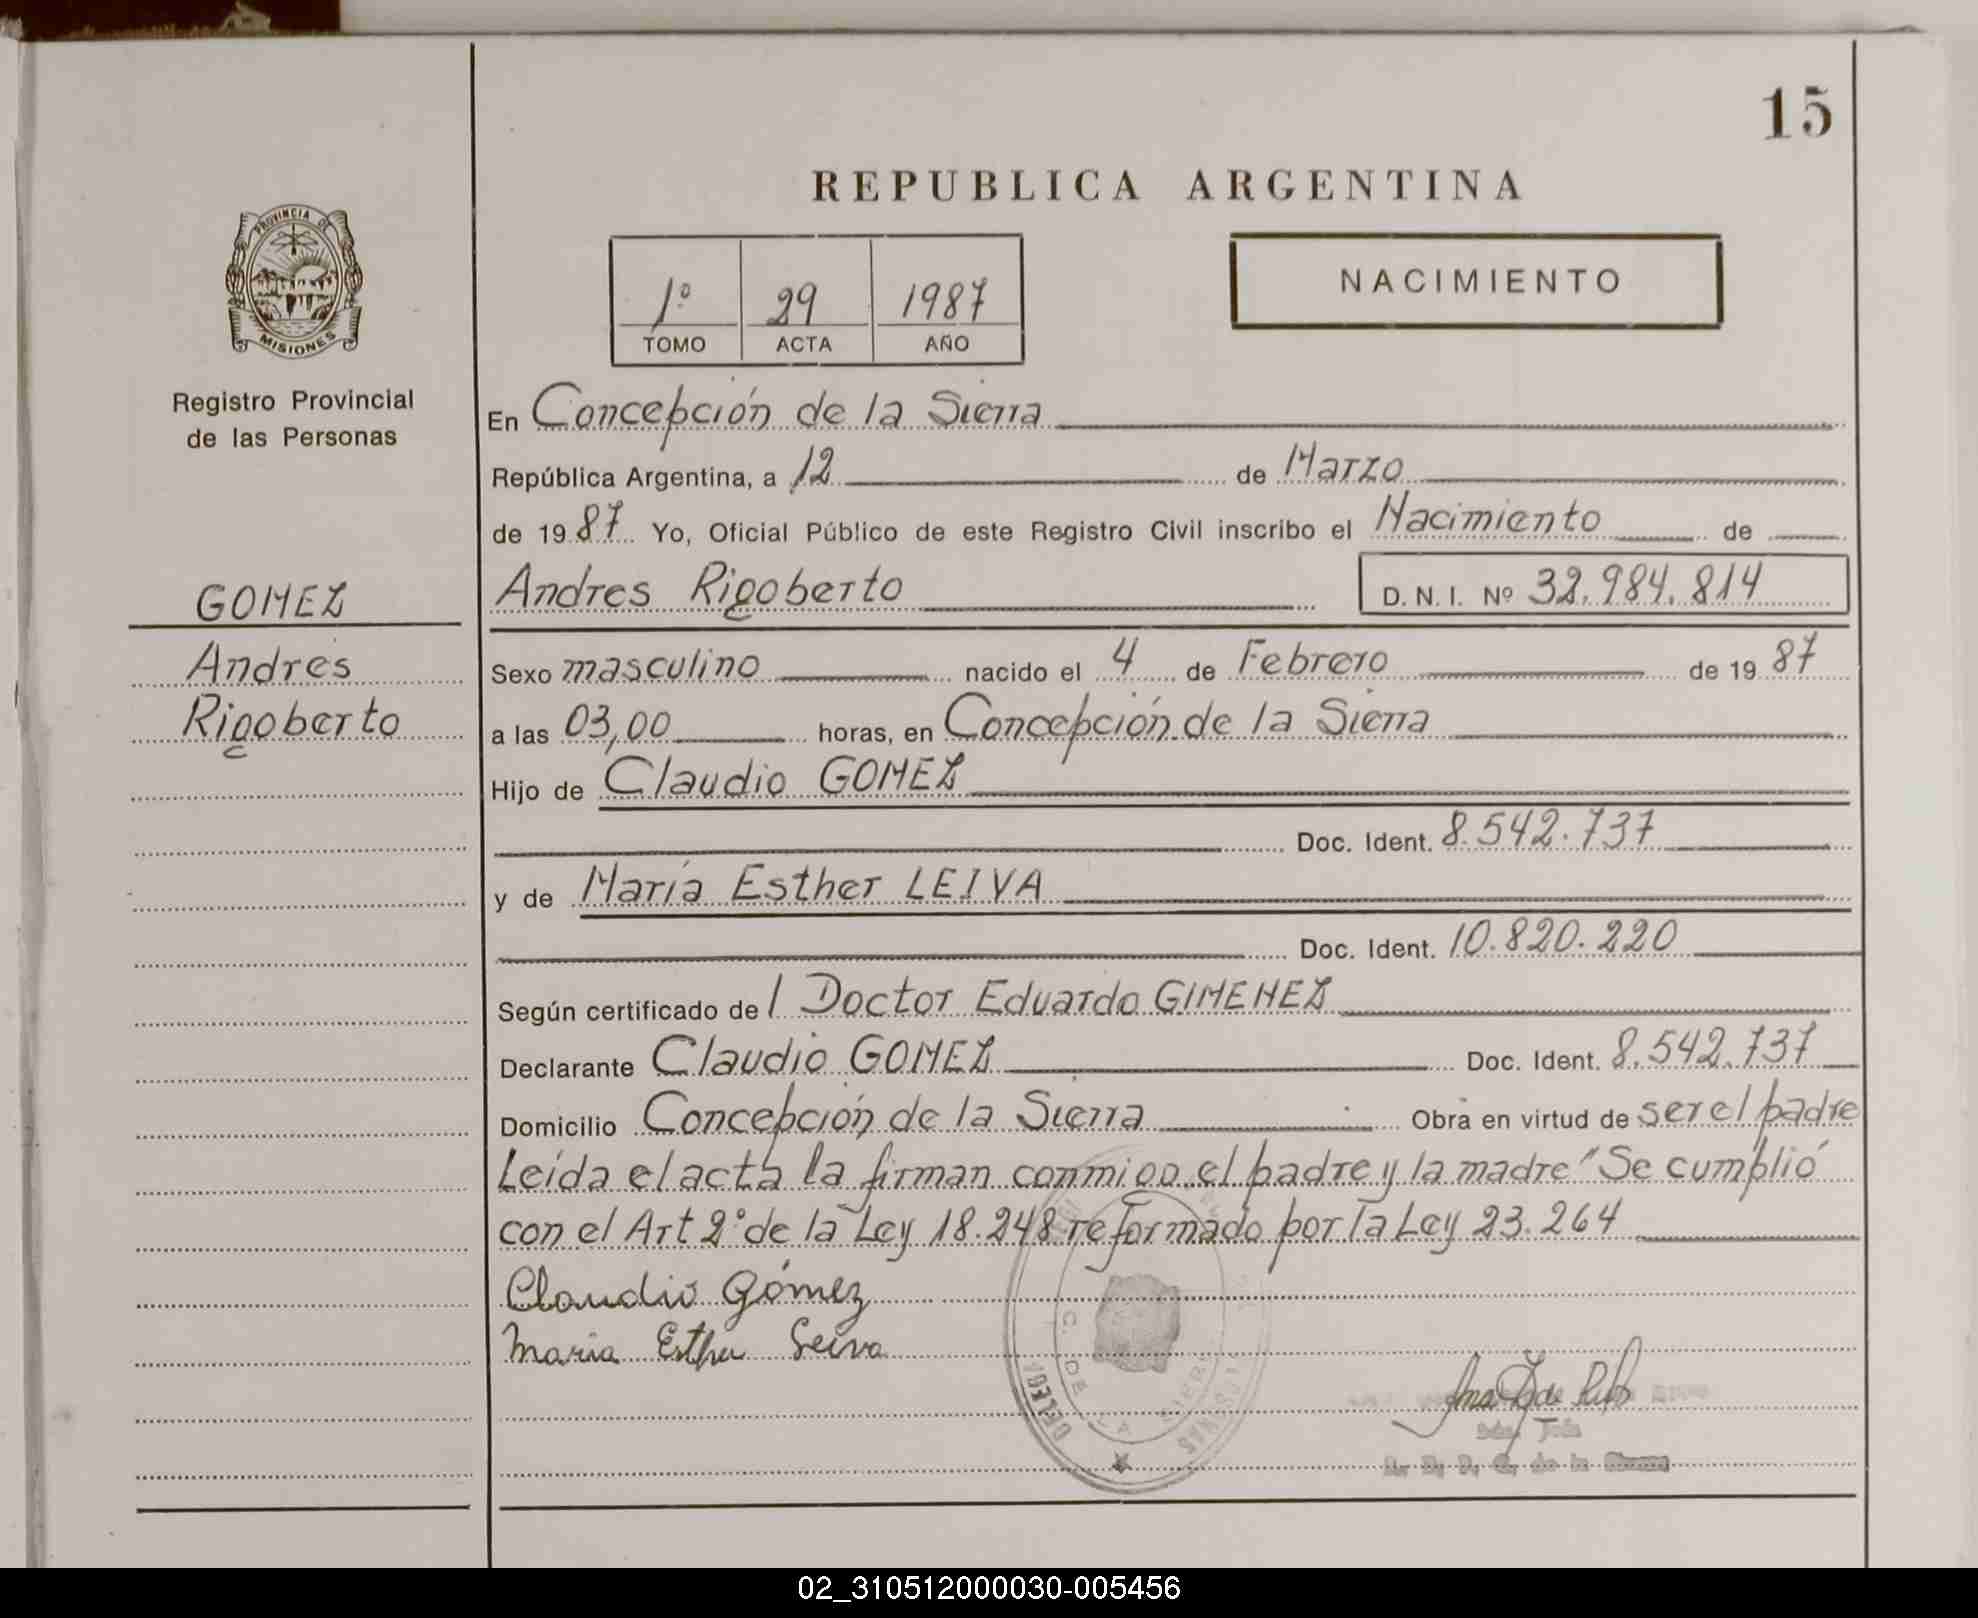 15
REPUBLICA ARGENTINA
PROVINCIA DE
MISIONES
Registro Provincial
de las Personas
1º 29 1987
TOMO ACTA AÑO
NACIMIENTO
GOMEZ
Andrés
Rigoberto
En Concepción de la Sierra
República Argentina, a 12 de Marzo
de 1987 Yo, Oficial Público de este Registro Civil inscribo el Nacimiento de
Andres Rigoberto D. N. I. Nº 32.984.814
Sexo masculino nacido el 4 de Febrero de 1987
a las 03,00 horas, en Concepción de la Sierra
Hijo de Claudio GOMEZ
Doc. Ident. 8.542.737
y de María Esther LEIVA
Doc. Ident. 10.820.220
Según certificado del Doctor Eduardo GIMENEZ
Declarante Claudio GOMEZ Doc. Ident. 8.542.737
Domicilio Concepción de la Sierra Obra en virtud de ser el padre
Leída el acta la firman conmigo el padre y la madre "Se cumplió
con el Art 2º de la Ley 18.248 reformado por la Ley 23.264
Claudio Gómez
Maria Esther Leiva
C. DE LA SIERRA
MISIONES
02_310512000030-005456